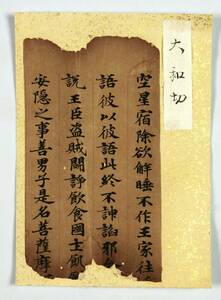 大和切
空星宿除欲解睡不作王家往
語彼以彼語此終不諛諂邪
説王臣盗賊闘諍飲食國土飢
安隠之事善男子是名菩薩摩